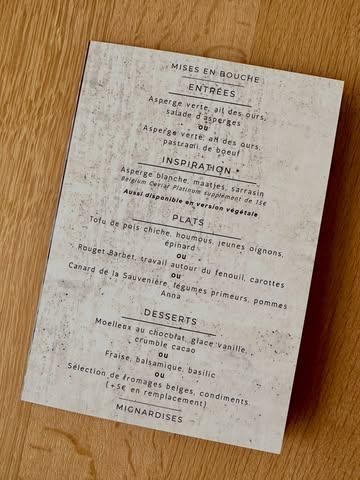 MISES EN BOUCHE
ENTRÉES
Asperge verte, ail des ours,
salade d'asperges
ou
Asperge verte, ail des ours,
pastrami de bœuf
INSPIRATION *
Asperge blanche, maatjes, sarrasin
Belgium Caviar Platinum supplément de 15€
Aussi disponible en version végétale
PLATS
Tofu de pois chiche, houmous, jeunes oignons,
épinard
ou
Rouget Barbet, travail autour du fenouil, carottes
ou
Canard de la Sauvenière, légumes primeurs, pommes
Anna
DESSERTS
Moelleux au chocolat, glace vanille,
crumble cacao
ou
Fraise, balsamique, basilic
ou
Sélection de fromages belges, condiments.
(+5€ en remplacement)
MIGNARDISES